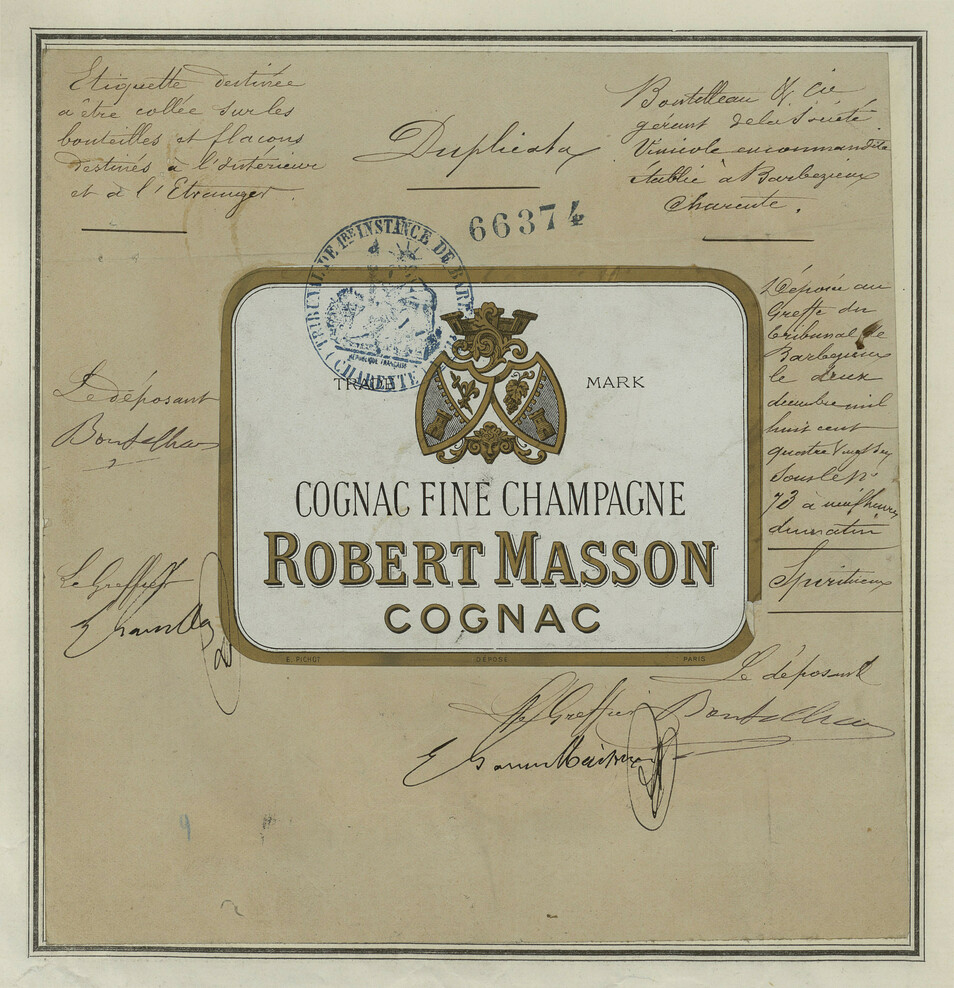 Etiquette destinée
a être collée sur les
bouteilles et flacons
destinés à l'Intérieur
et à l'Etranger.
Duplicata
Boutelleau & Cie
gérant de la Société
Vinicole en commandite
établie à Barbezieux
Charente.
66374
TRIBUNAL DE 1ERE INSTANCE DE BARB
RÉPUBLIQUE FRANÇAISE
(CHARENTE)
TRADE MARK
COGNAC FINE CHAMPAGNE
ROBERT MASSON
COGNAC
E. PICHOT DÉPOSÉ PARIS
Déposée au
Greffe du
tribunal de
Barbezieux
le deux
décembre mil
huit cent
quatre vingt
sous le No
73 à neuf heures
du matin
Spiritueux
Le déposant
Boutelleau
Le Greffier
Le déposant
Le Greffier Boutelleau